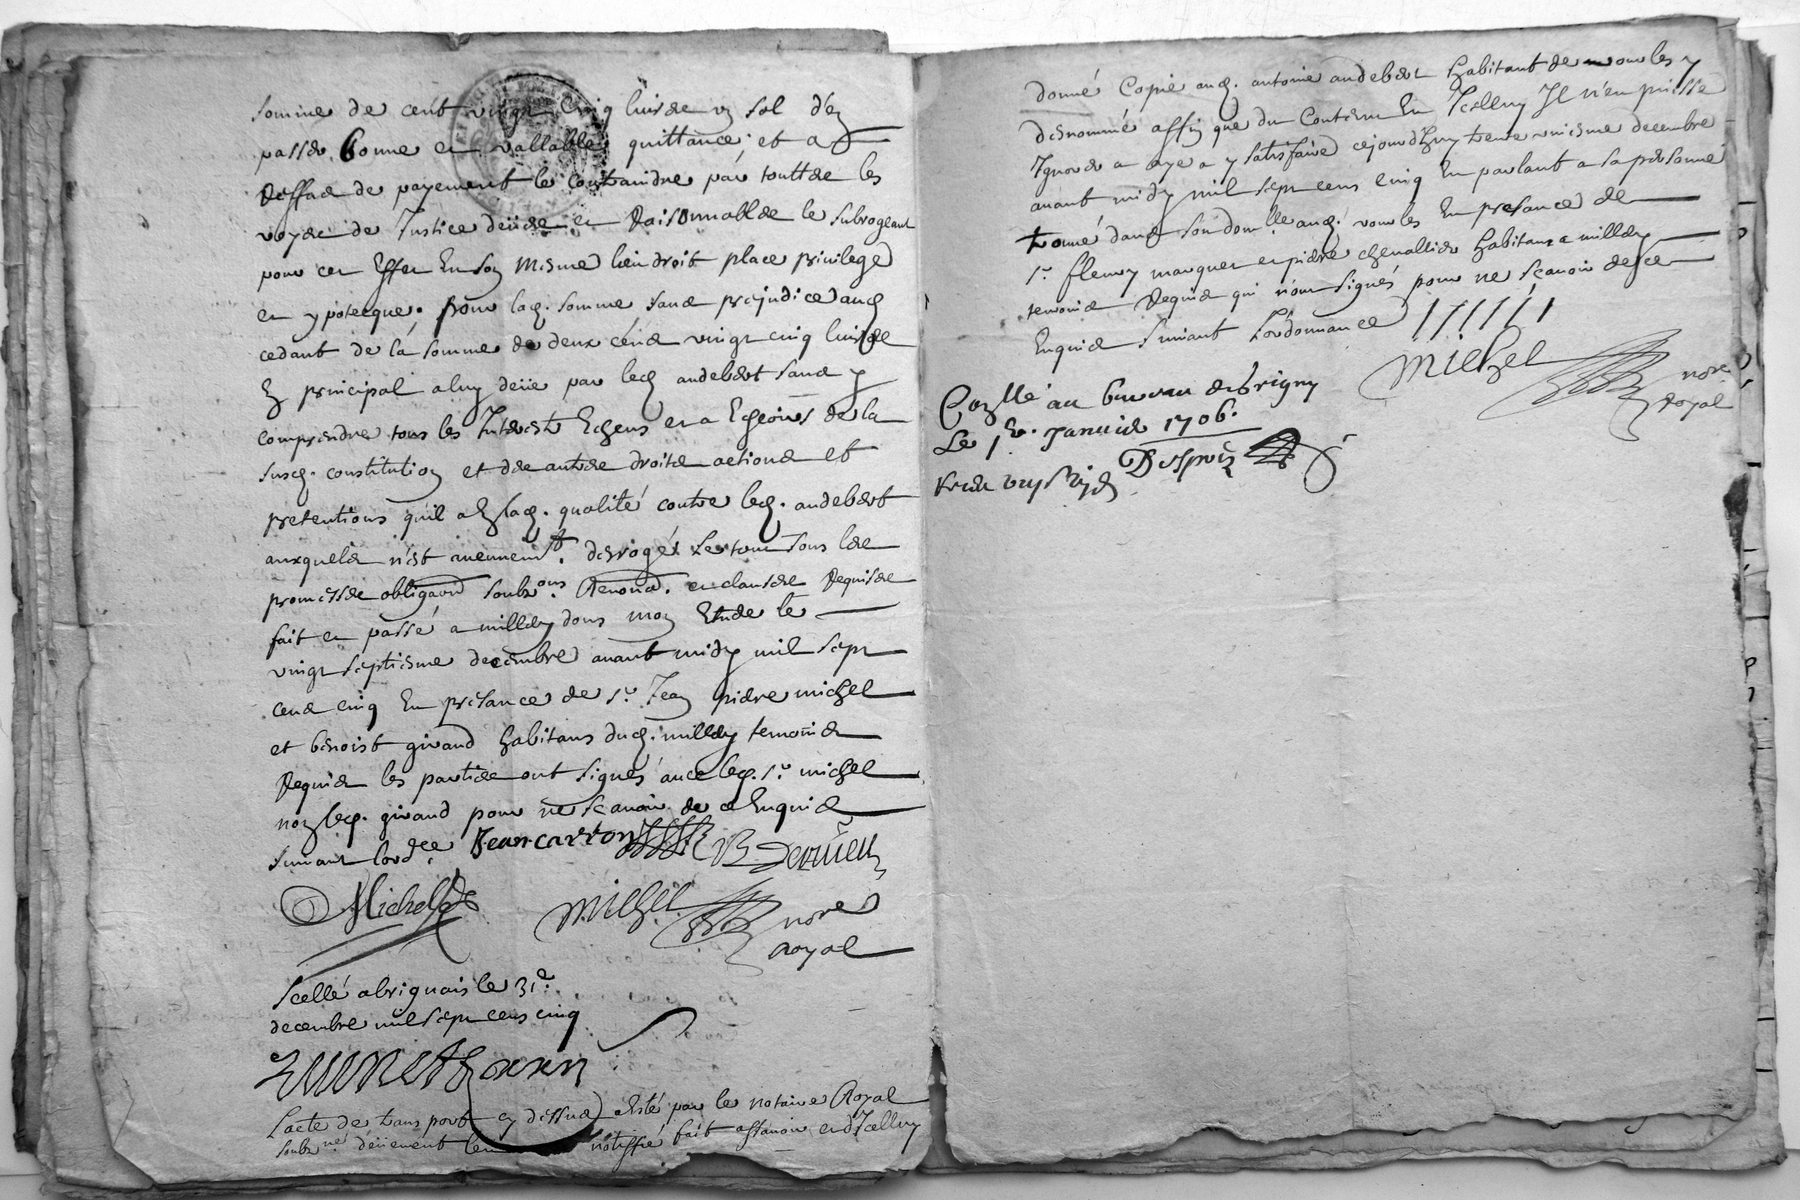 somme de cent vingt cinq livres v sol d'en
passer bonne et vallable quittance et a
deffaut de payement le contraindre par touttes les
voyes de Justice deües et Raisonnables le subrogeant
pour cet Effet En son mesme lieu droit place privilege
et ypotecque. pour lad. somme sans prejudice aud
cedant de la somme de deux cens vingt cinq livres
En principal a luy deüe par led andebert sans y
comprendre tous les Interests Escheus et a Escheoirs de la
susd. constitution et des autres droits actions et
pretentions qu'il a En lad. qualité contre led. andebert
auxquels n'est aucunemt. derogé Le tout sous les
promesses obligaons soubzons. Renonca. et clauses Requises
fait et passé a millery dans mon Etude le
vingt septiesme decembre avant midy mil sept
cens cinq En presance de sr. Jean pierre michel
et benoist girand habitans dud. millery temoins
Requis les parties ont signés avec led. sr. michel
non led. girand pour ne scavoir de ce Enquis
suivant lord.ce Jean carron B
Michel michel nore
Royal
scellé a brignais le 31e.
decembre mil sept cens cinq
Lacte de transport cy dessus a Esté par le notaire Royal
soubzne. deüement notiffié fait assavoir et d'Icelluy
donné Copie aud. antoine andebert habitant de vourles y
desnommé affin que du Contenu En Icelluy Il n'en puisse
Ignorer a aye a y satisfaire cejourd'huy trente uniesme decembre
avant midy mil sept cens cinq En parlant a sa personne
trouvé dans son domlle aud. vourles En presance de
sr. fleury marquet et pierre chevallier habitans a millery
temoins Requis qui n'ont signés pour ne scavoir de ce
Enquis suivant Lordonnance
michel nore
Royal
Conllé au bureau de brigny
Le 1er. Janvier 1706.
Despois